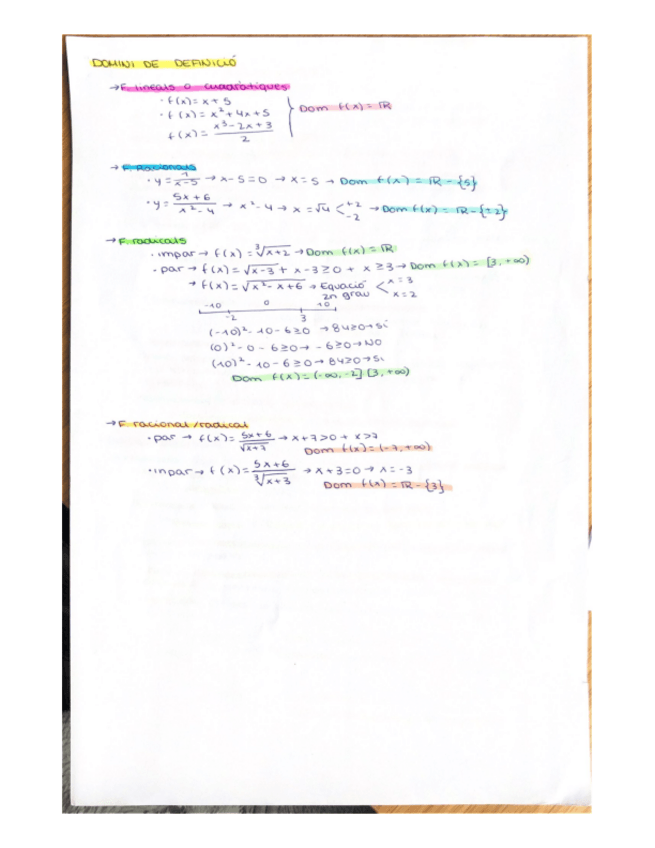 DOMINI DE DEFINICIÓ
→ F. lineals o cuadràtiques
· f(x) = x + 5
· f(x) = x² + 4x + 5
f(x) = x³ - 2x + 3 / 2
Dom f(x) = ℝ
→ F. Racionals
· y = 1/x-5 → x-5=0 → x=5 → Dom f(x) = ℝ - {5}
· y = 5x+6/x²-4 → x²-4 → x = √4 < +2 -2 → Dom f(x) = ℝ - {±2}
→ F. radicals
· impar → f(x) = ∛x+2 → Dom f(x) = ℝ
· par → f(x) = √x-3 + x-3≥0 + x≥3 → Dom f(x) = [3, +∞)
→ f(x) = √x²-x+6 → Equació 2n grau < x=3 x=2
-10 0 10
-2 3
(-10)² - 10 - 6 ≥ 0 → 84≥0 → Sí
(0)² - 0 - 6 ≥ 0 → -6≥0 → NO
(10)² - 10 - 6 ≥ 0 → 84≥0 → Sí
Dom f(x) = (-∞, -2] [3, +∞)
→ F. racional/radical
· par → f(x) = 5x+6/√x+7 → x+7>0 + x>7
Dom f(x) = (-7, +∞)
· inpar → f(x) = 5x+6/∛x+3 → x+3=0 → x=-3
Dom f(x) = ℝ - {3}